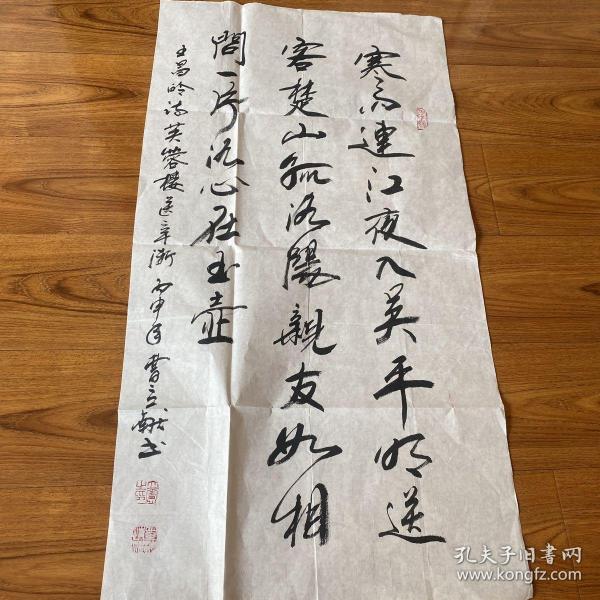 寒雨連江夜入吴平明送
客楚山孤洛陽親友如相
問一片冰心在玉壶
王昌龄诗芙蓉楼送辛渐 丙申年 曹立献书
孔夫子旧书网
www.kongfz.com